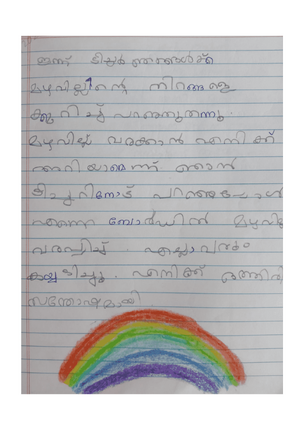 ഇന്ന് ടീച്ചർ ഞങ്ങൾക്ക്
മഴവില്ലിന്റെ നിറങ്ങളെ
ക്കുറിച്ച് പറഞ്ഞുതന്നു.
മഴവില്ല് വരക്കാൻ എനിക്ക്
അറിയാമെന്ന് ഞാൻ
ടീച്ചറിനോട് പറഞ്ഞപ്പോൾ
എന്നെ ബോർഡിൽ മഴവില്ല്
വരപ്പിച്ച്. എല്ലാവരും
കയ്യടിച്ചു. എനിക്ക് ഒത്തിരി
സന്തോഷമായി